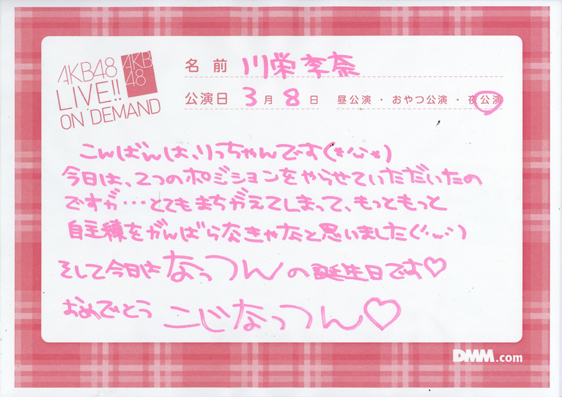 AKB48
LIVE!!
ON DEMAND
AKB
48
名前 川栄李奈
公演日 3月8日 昼公演・おやつ公演・夜公演
こんばんは、りっちゃんです(*･ω･*)
今日は、2つのポジションをやらせていただいたの
ですが…とてもまちがえてしまって、もっともっと
自主練をがんばらなきゃなと思いました(･ω･)
そして今日はなっつんの誕生日です♡
おめでとう こじなっつん♡
DMM.com